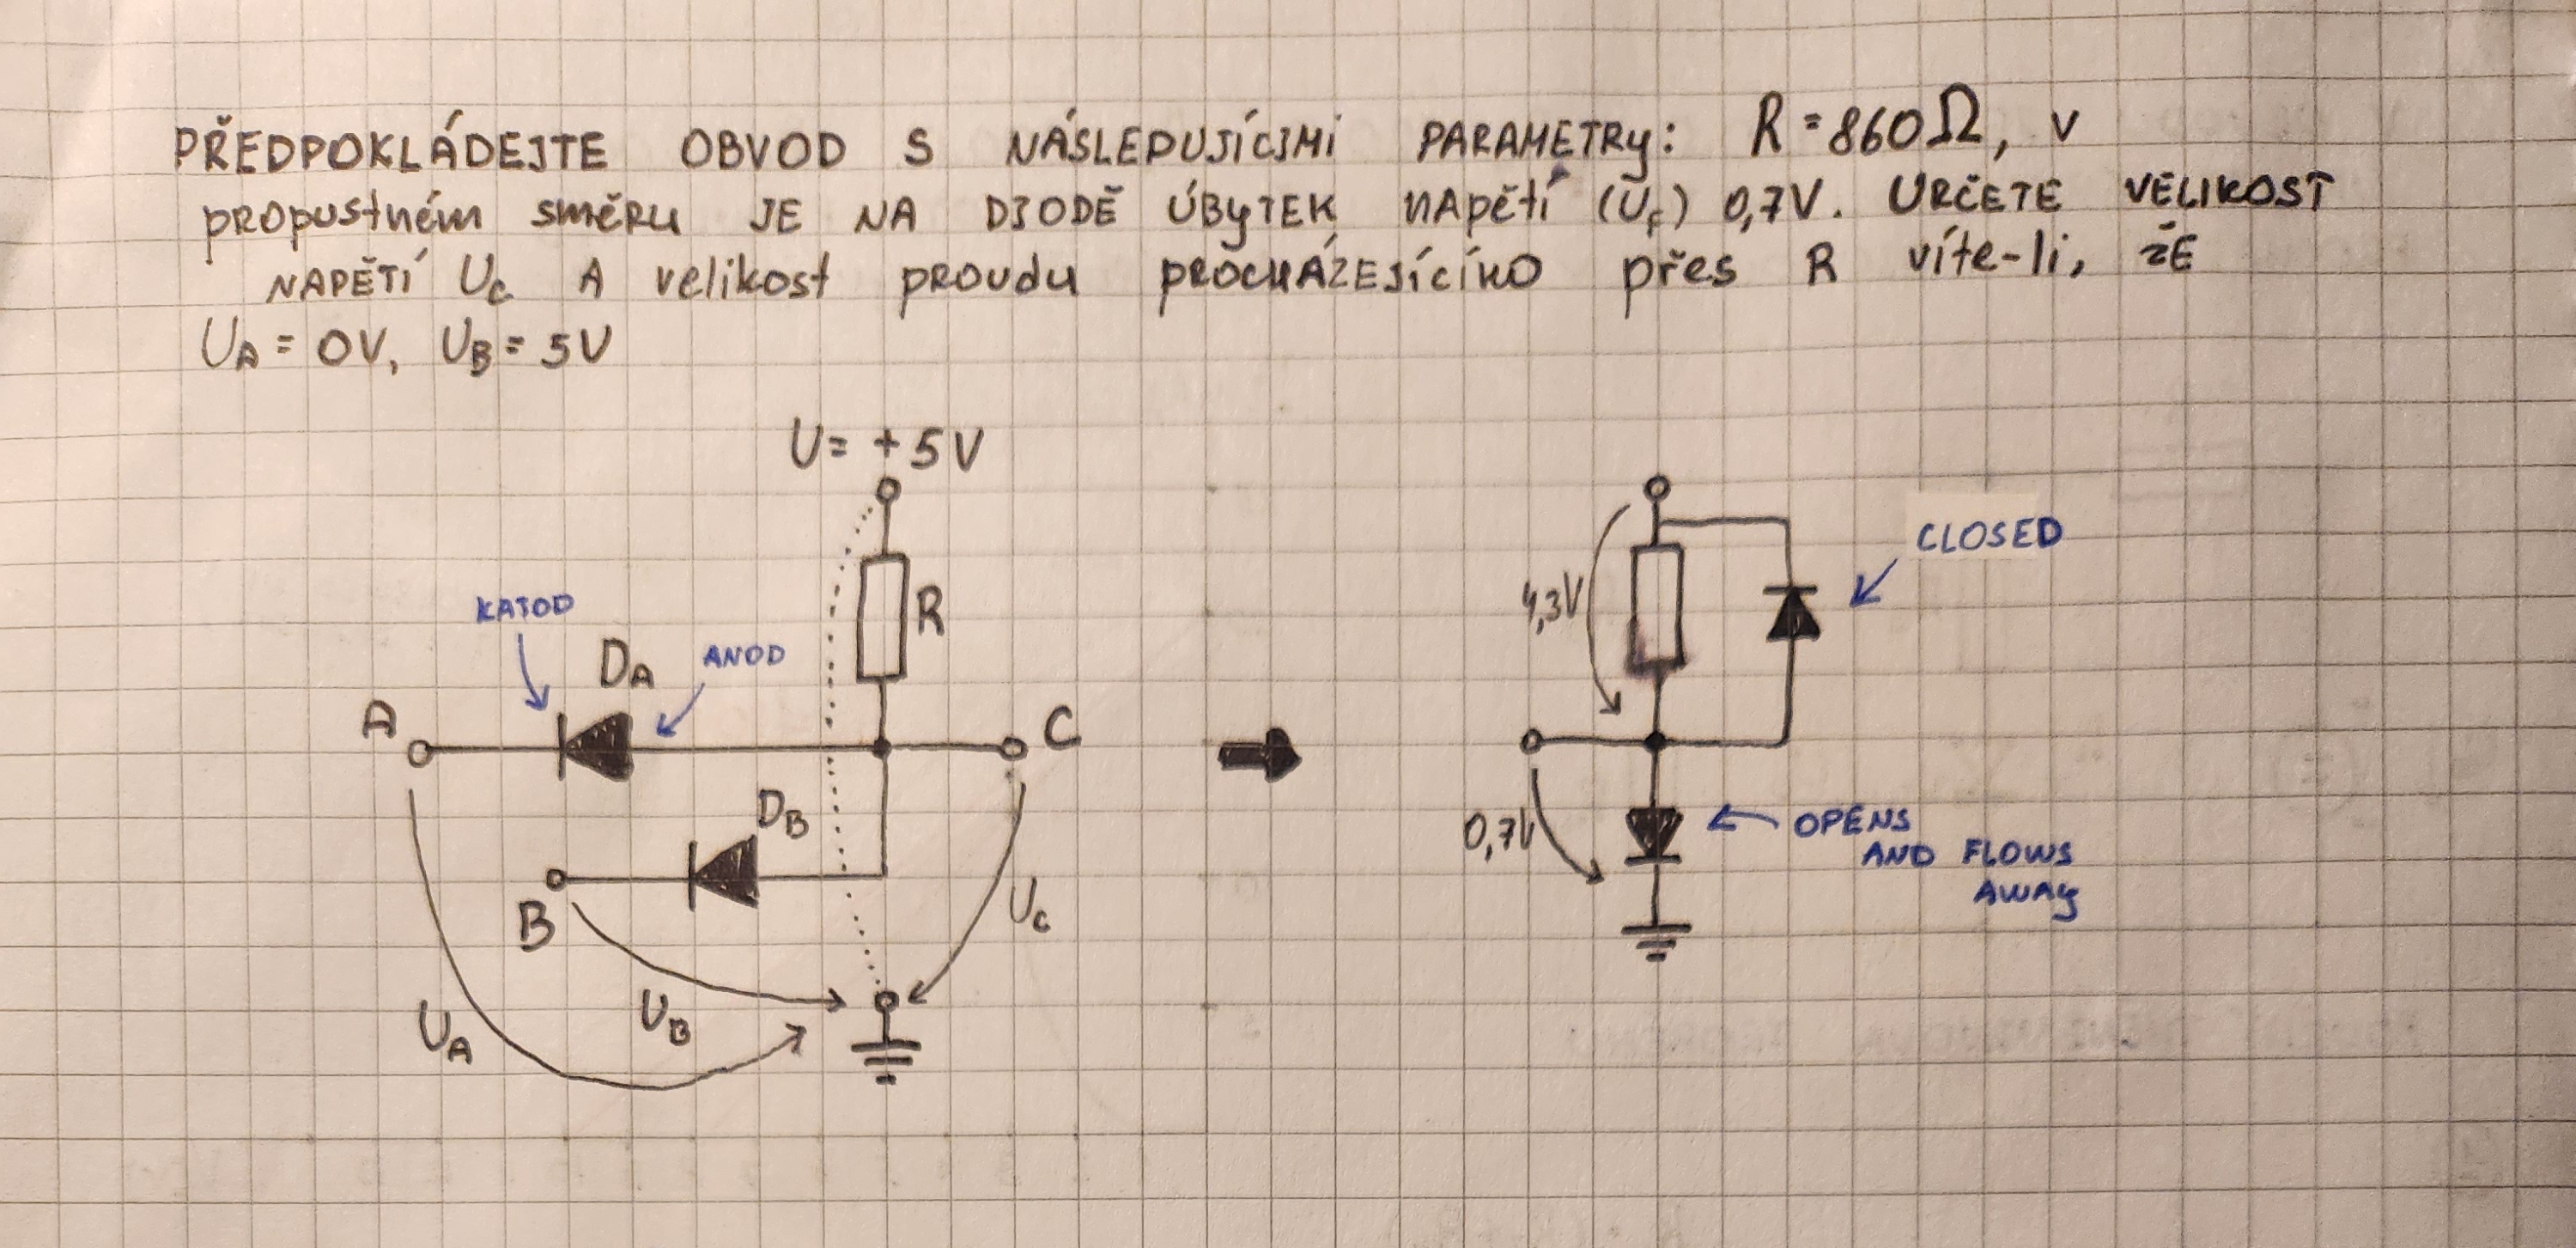 PŘEDPOKLÁDEJTE OBVOD S NÁSLEDUJÍCÍMI PARAMETRY: R = 860Ω, V
PROPUSTNÉM SMĚRU JE NA DIODĚ ÚBYTEK NAPĚTÍ (UF) 0,7V. URČETE VELIKOST
NAPĚTÍ UC A VELIKOST PROUDU PROCHÁZEJÍCÍHO PŘES R VÍTE-LI, ŽE
UA = 0V, UB = 5V
U = +5V
R
KATOD
DA
ANOD
A
C
DB
B
UC
UB
UA
CLOSED
4,3V
0,7V
OPENS
AND FLOWS
AWAY